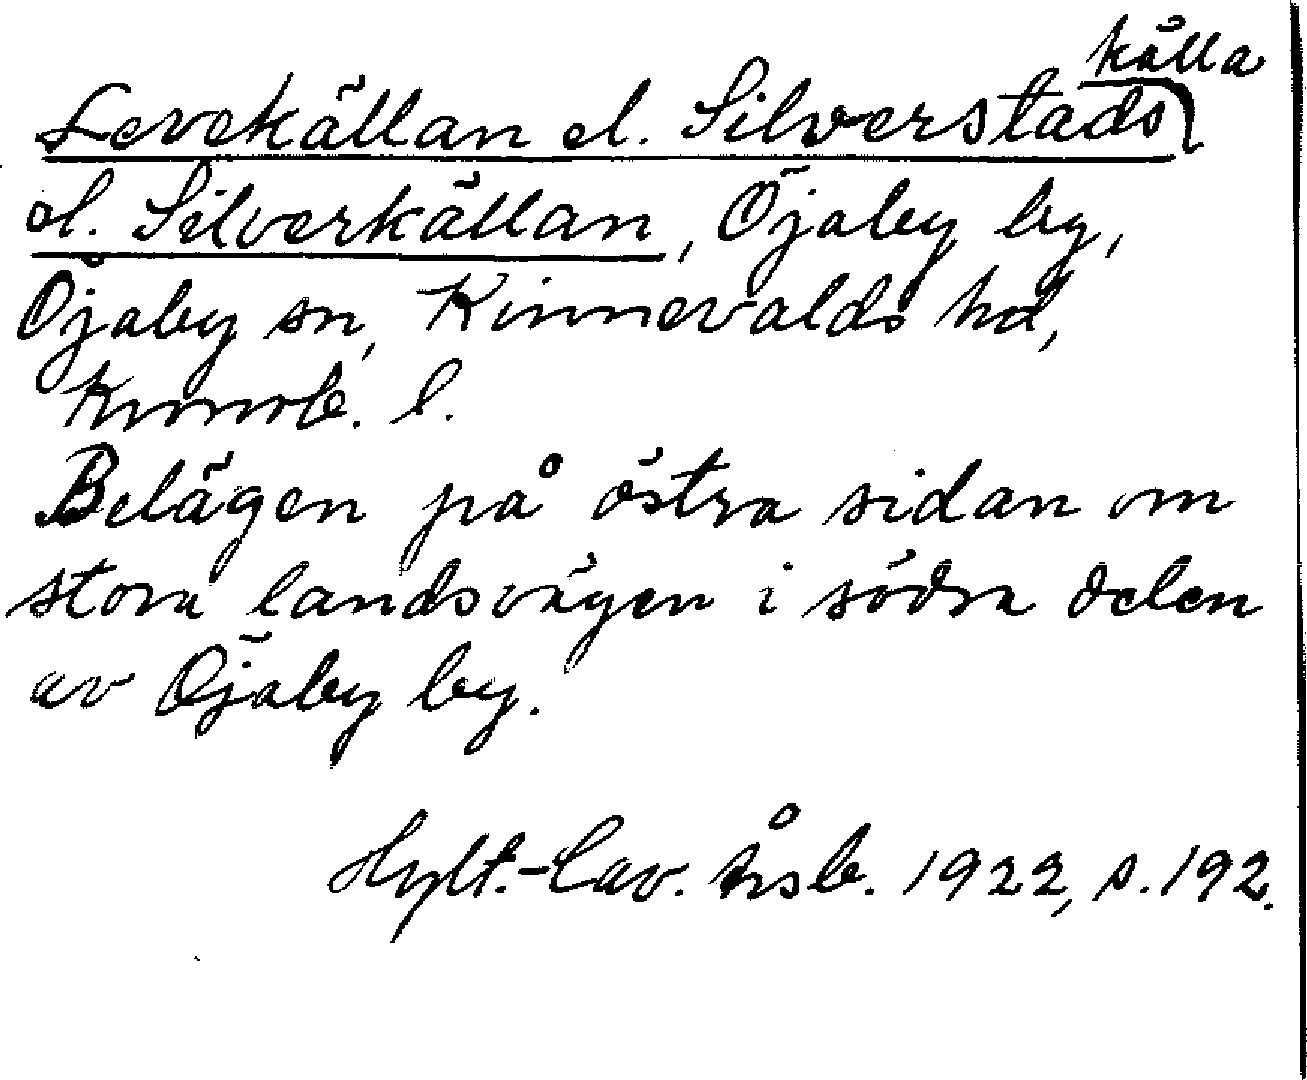 Levekällan el. Silverstads källa
el. Silverkällan, Öjaby by,
Öjaby sn, Kinnevalds hd,
Kronob. l.
Belägen på östra sidan om
stora landsvägen i södra delen
av Öjaby by.
Hylt.-Cav. Årsb. 1922, s. 192.